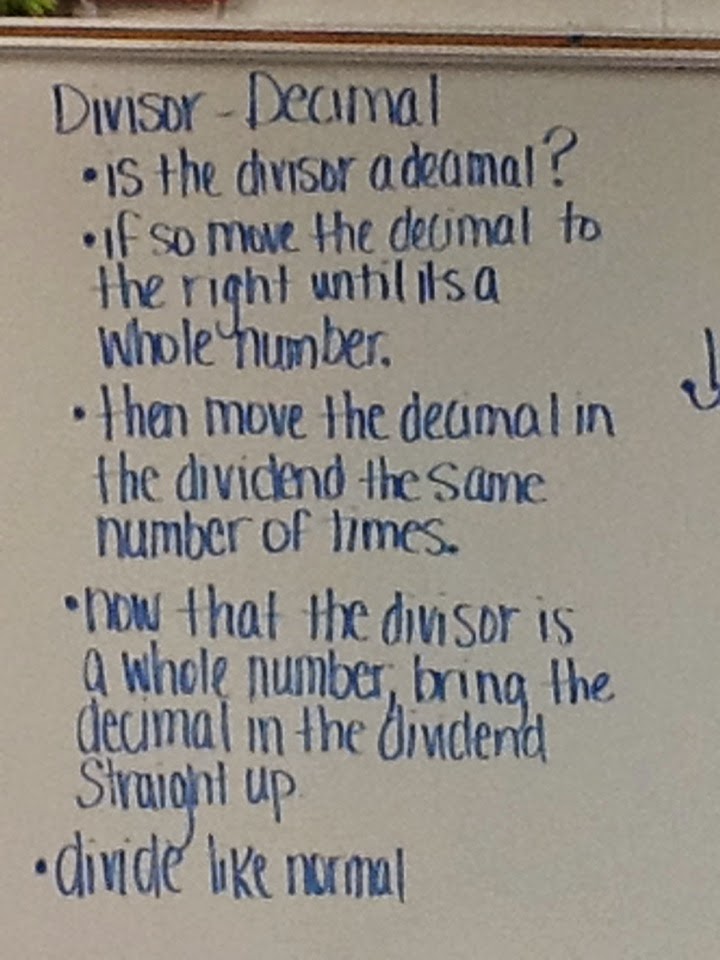 Divisor - Decimal
• is the divisor a decimal?
• if so move the decimal to
the right until its a
whole number.
• then move the decimal in
the dividend the same
number of times.
• now that the divisor is
a whole number, bring the
decimal in the dividend
straight up
• divide like normal